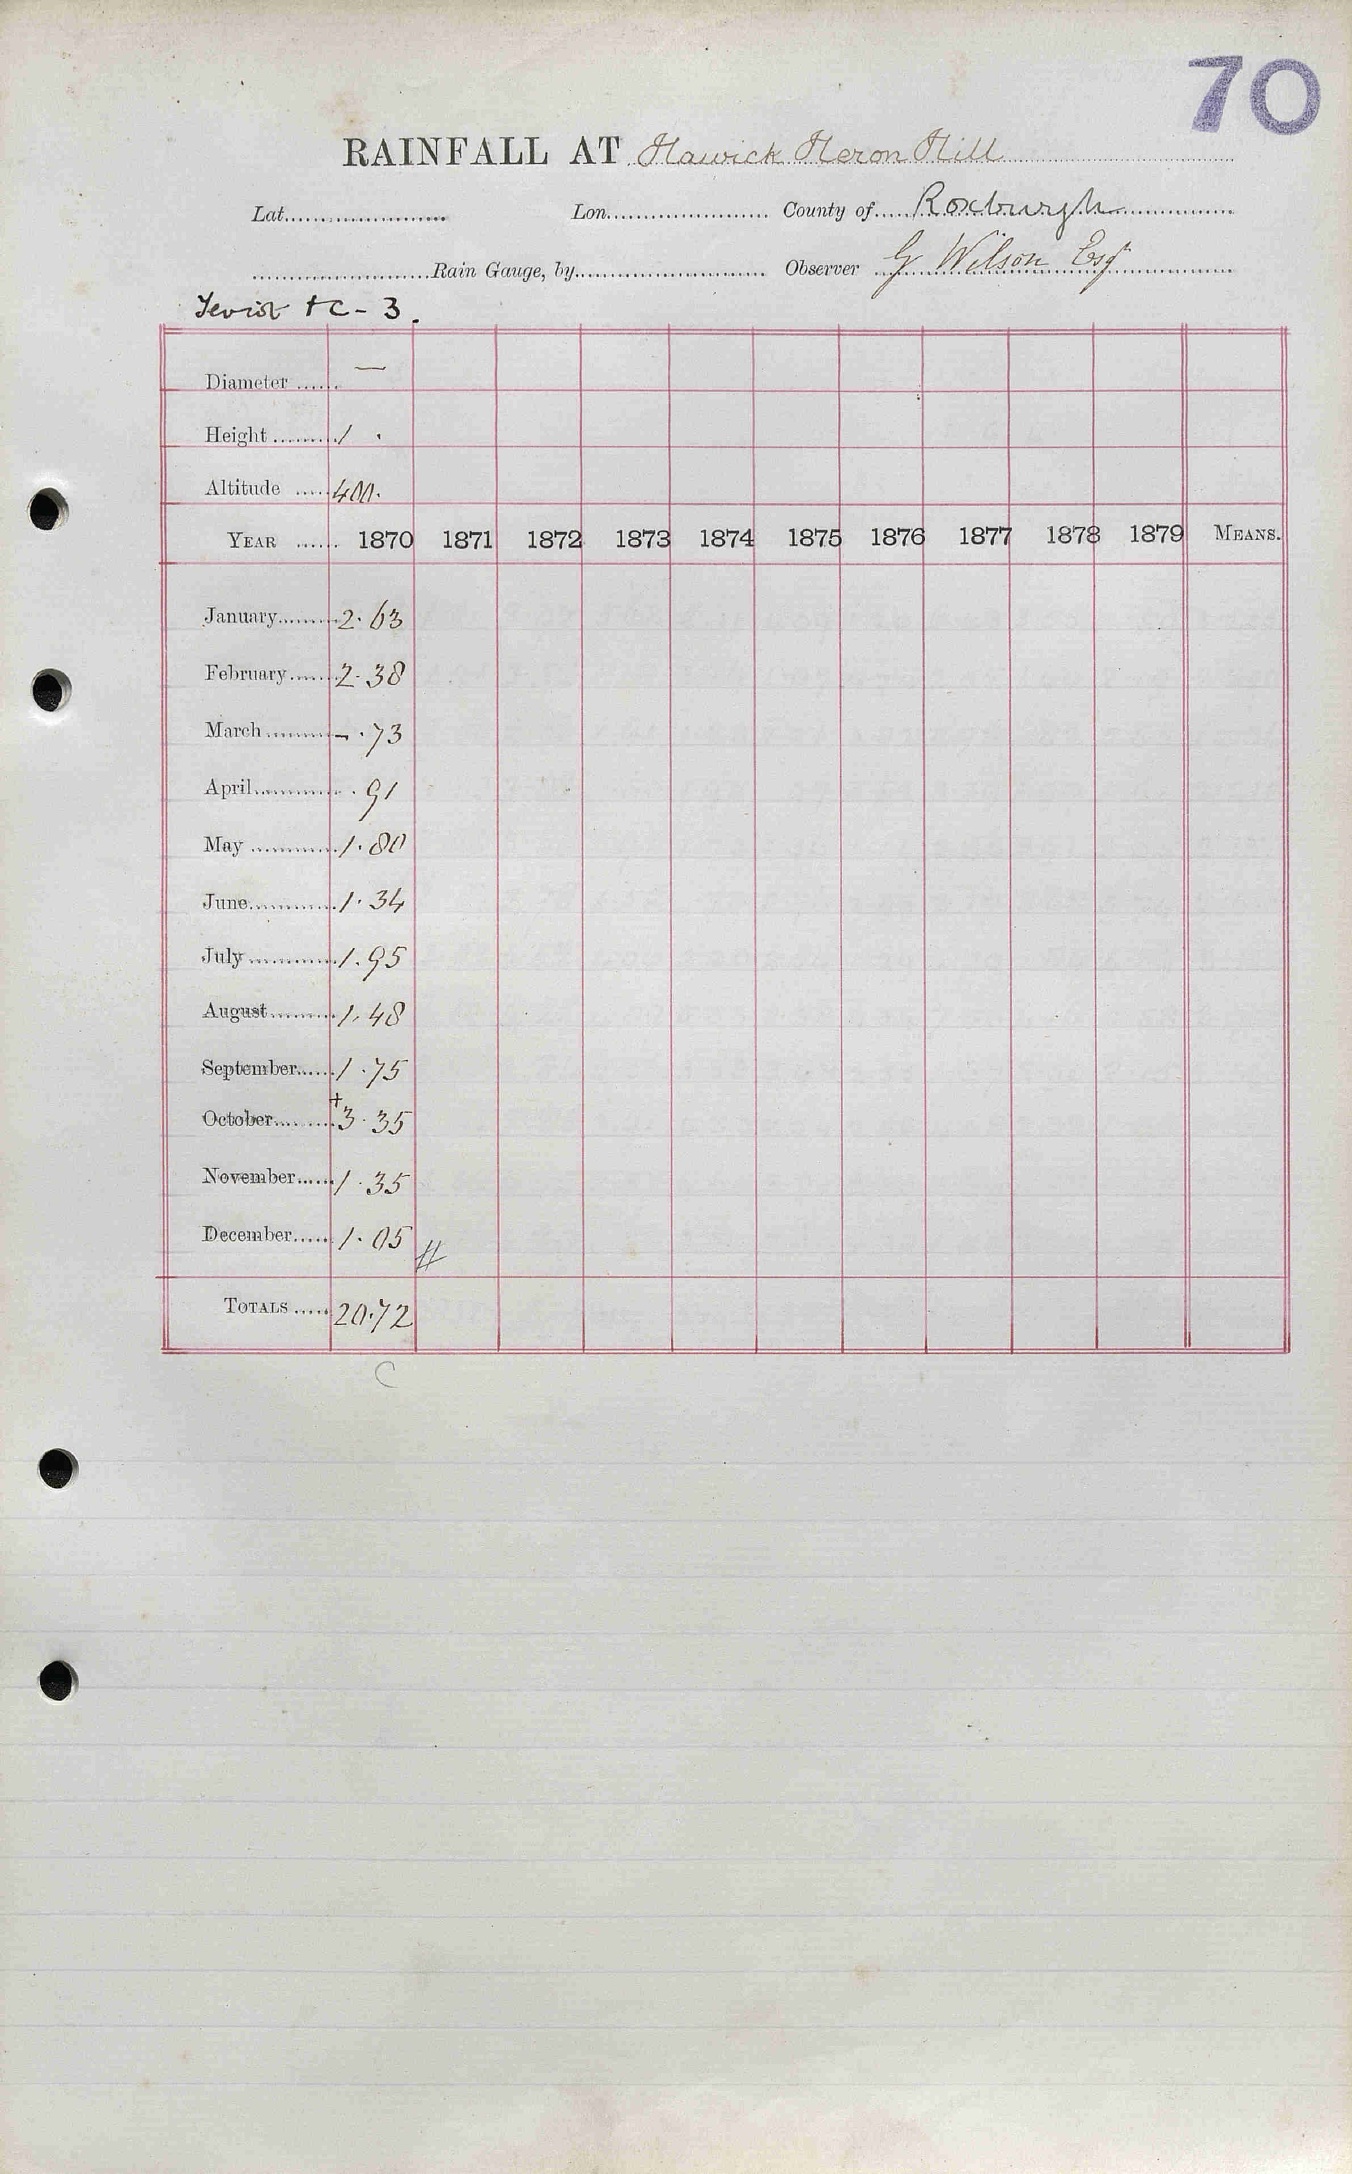 70
RAINFALL AT Hawick Heron Hill
Lat...................... Lon...................... County of Roxburgh
......................Rain Gauge, by...................... Observer G Wilson Esq
Teviot + C - 3.
Diameter ...... —
Height ......... 1 .
Altitude ..... 400.
YEAR ...... 1870 1871 1872 1873 1874 1875 1876 1877 1878 1879 MEANS.
January......... 2.63
February...... 2.38
March ......... - .73
April............ .91
May ............ 1.80
June............ 1.34
July ............ 1.95
August......... 1.48
September...... 1.75
October......... +3.35
November...... 1.35
December...... 1.05 //
TOTALS ..... 20.72
C